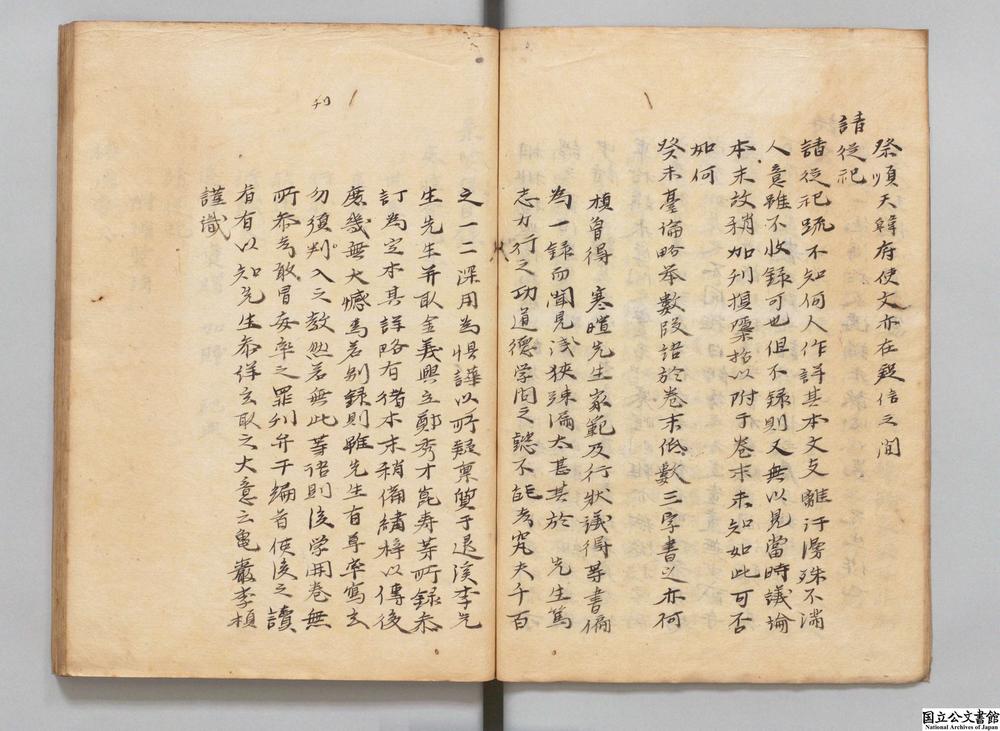 祭順天韓府使文亦在疑信之間
請從祀
請從祀疏不知何人作詳其本文支離汙漫殊不滿
人意雖不收録可也但不録則又無以見當時議論
本末故稍加刊損檃括以附于卷末未知如此可否
如何
癸未臺論略举數段語於卷末低數三字書之亦何
楨曽得 寒暄先生家範及行狀議得等書徧
為一録而聞見浅狹踈漏太甚其於 先生篤
志力行之功道德学問之懿不能考究夫千百
之一二深用為惧謹以所疑禀質于退溪李先
生先生并取金義興立鄭秀才崑寿等所録叅
訂為定本其詳略有猪本末稍備繡梓以傳後
庶幾無大憾焉若别録則雖先生有尊率寫去
勿復判入之教然若無此等语則後学開卷無
所叅考敢冒妄率之罪刋弁于編首使後之讀
者有以知先生叅佯去取之大意云龜巖李楨
謹識
国立公文書館
National Archives of Japan